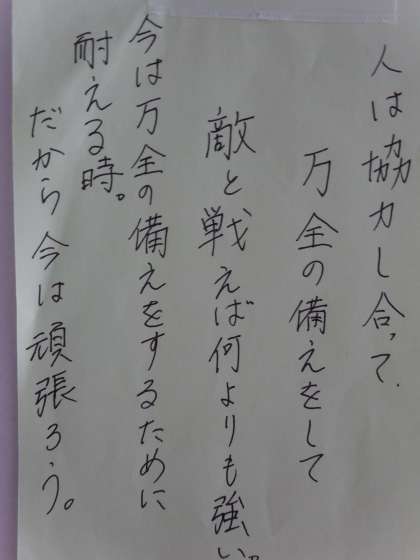 人は協力し合って、
万全の備えをして
敵と戦えば何よりも強い。
今は万全の備えをするために
耐える時。
だから今は頑張ろう。